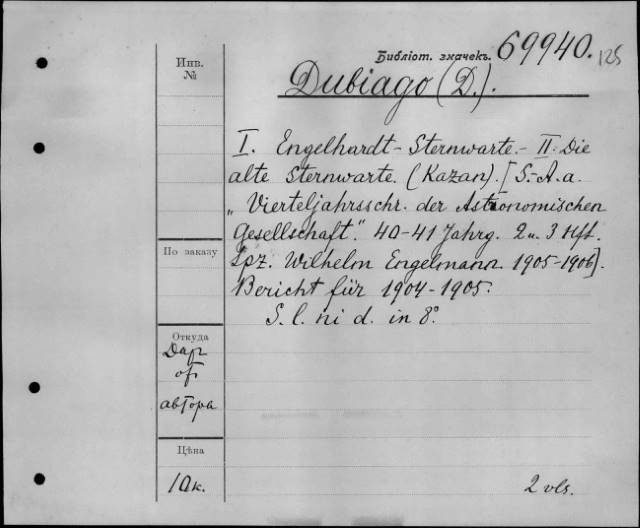 Инв.
№
Библіот. значекъ. 69940. 125
Dubiago (D.).
I. Engelhardt-Sternwarte.- II. Die
alte Sternwarte. (Kazan). [S.-A. a.
„Vierteljahrsschr. der Astronomischen
Gesellschaft." 40-41 Jahrg. 2 u. 3 Hft.
Lpz. Wilhelm Engelmann 1905-1906].
Bericht für 1904-1905.
S. l. ni d. in 8°.
По заказу
Откуда
Дар
от
автора
Цѣна
10к.
2 vls.